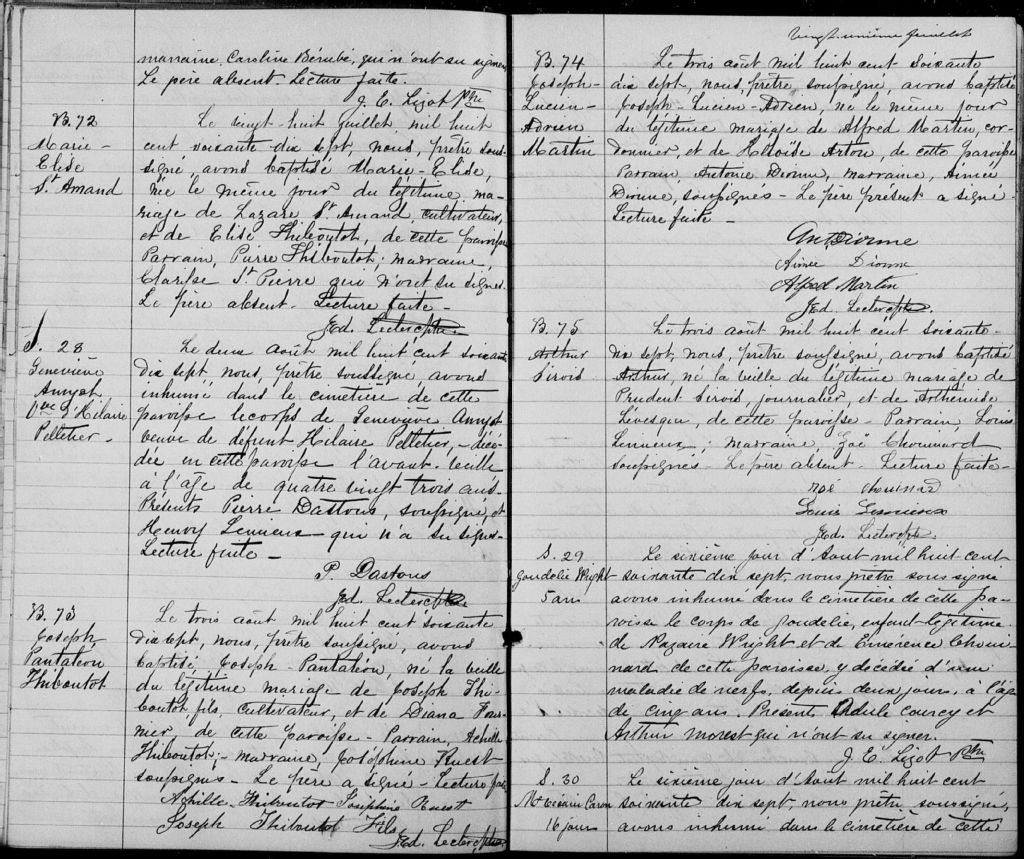 marraine, Caroline Bérubé, qui n'ont su signer
Le père absent. Lecture faite.
J. E. Lizot Ptre
B. 72
Marie-
Elise
St Amand
Le vingt-huit juillet, mil huit
cent soixante dix sept, nous, prêtre sous-
signé, avons baptisé Marie-Elise,
née le même jour du légitime ma-
riage de Lazare St Amand, cultivateur,
et de Elise Thiboutot, de cette paroisse
Parrain, Pierre Thiboutot; marraine,
Clarisse St Pierre qui n'ont su signer.
Le père absent. Lecture faite-
Jed. Leclerc ptre.
S. 28
Geneviève
Amyot,
Vve d'Hilaire
Pelletier-
Le deux Août mil huit cent soixante
dix sept, nous, prêtre soussigné, avons
inhumé dans le cimetière de cette
paroisse le corps de Geneviève Amyot
veuve de défunt Hilaire Pelletier,- décé-
dée en cette paroisse l'avant-veille
à l'âge de quatre vingt trois ans-
Présents Pierre Dastous, soussigné, et
Henry Lemieux qui n'a su signer-
Lecture faite-
P. Dastous
Jed. Leclerc ptre
B. 73
Joseph
Pantaléon
Thiboutot
Le trois août mil huit cent soixante
dix sept, nous, prêtre soussigné, avons
baptisé Joseph-Pantaléon, né la veille
du légitime mariage de Joseph Thi-
boutot fils, cultivateur, et de Diana Four-
nier, de cette paroisse- Parrain, Achille
Thiboutot;- marraine, Joséphine Ruest
soussignés- Le père a signé- Lecture faite
Achille Thiboutot Joséphine Ruest
Joseph Thiboutot Fils
Jed. Leclerc ptre
vingt-unième feuillet
B. 74
Joseph-
Lucien-
Adrien
Martin
Le trois août mil huit cent soixante
dix sept, nous, prêtre soussigné, avons baptisé
Joseph-Lucien-Adrien, né le même jour
du légitime mariage de Alfred Martin, cor-
donnier, et de Héloïde Arton, de cette paroisse
Parrain, Antoine Dionne, marraine, Aimée
Dionne, soussignés- Le père présent a signé.
Lecture faite-
Ant Dionne
Aimée Dionne
Alfred Martin
Jed. Leclerc ptre.
B. 75
Arthur
Sirois
Le trois août mil huit cent soixante-
dix sept, nous, prêtre soussigné, avons baptisé
Arthur, né la veille du légitime mariage de
Prudent Sirois, journalier, et de Arthémise
Lévesque, de cette paroisse- Parrain, Louis
Lemieux; marraine, Zoë Chouinard
soussignés- Le père absent. Lecture faite-
Zoé Chouinard
Louis Lemieux
Jed. Leclerc ptre.
S. 29
Goudélie Wright
5 ans
Le sixième jour d'Août mil huit cent
soixante dix sept, nous prêtre soussigné
avons inhumé dans le cimetière de cette pa-
roisse le corps de Goudélie, enfant légitime
de Nazaire Wright et de Emérence Choui-
nard de cette paroisse, y décédé d'une
maladie de nerfs, depuis deux jours, à l'âge
de cinq ans. Présents Adule Courcy et
Arthur Morest qui n'ont su signer.
J. E. Lizot Ptre
S. 30
Caron
16 jours
Le sixième jour d'Août mil huit cent
soixante dix sept, nous prêtre soussigné,
avons inhumé dans le cimetière de cette